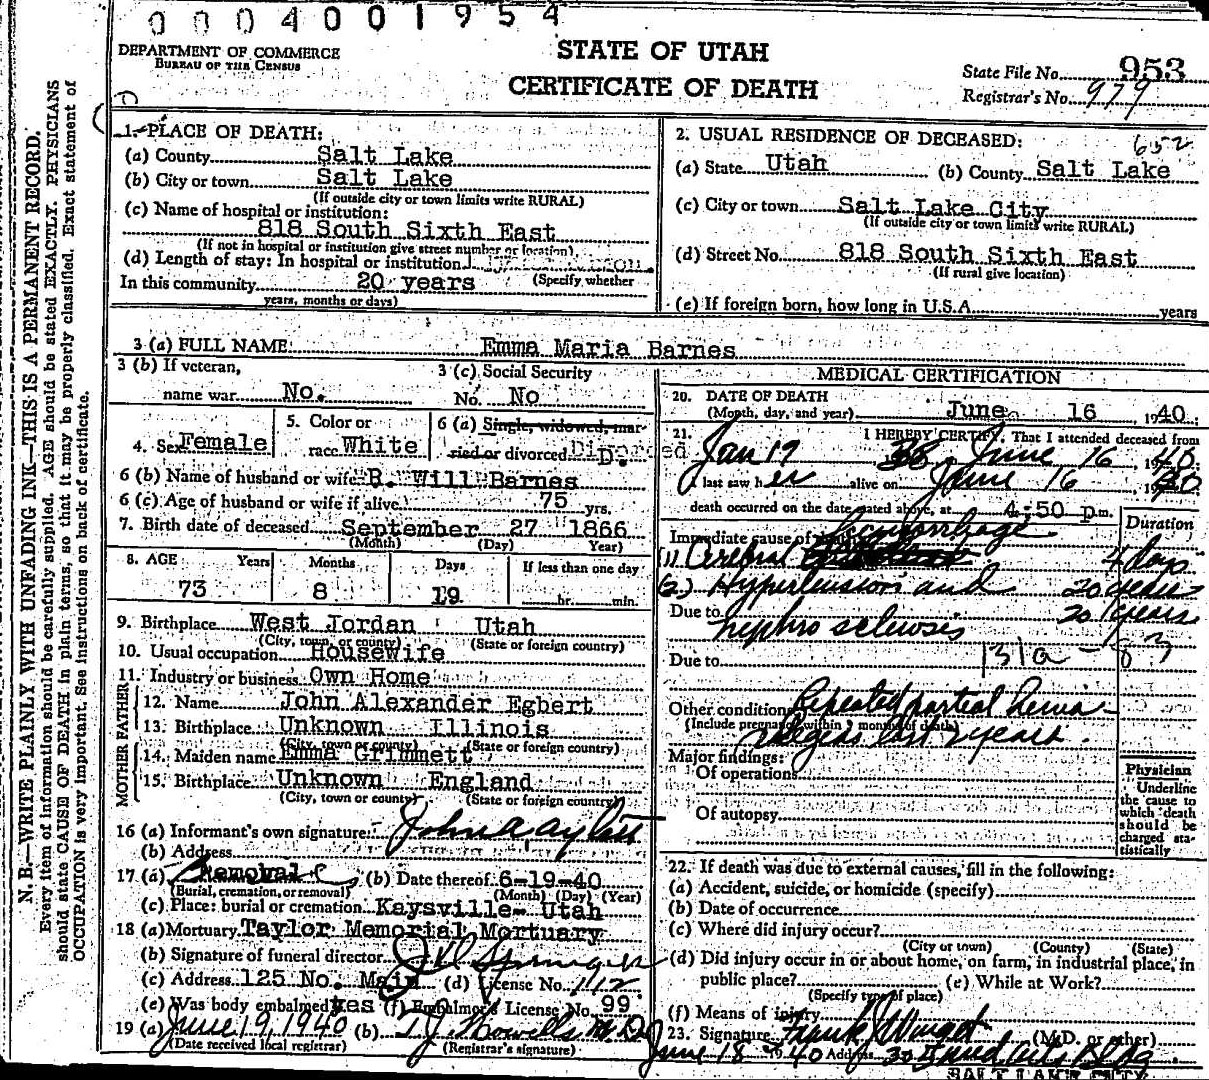 0004001954
DEPARTMENT OF COMMERCE
BUREAU OF THE CENSUS
STATE OF UTAH
CERTIFICATE OF DEATH
State File No. 953
Registrar's No. 979
N. B.—WRITE PLAINLY WITH UNFADING INK—THIS IS A PERMANENT RECORD.
Every item of information should be carefully supplied. AGE should be stated EXACTLY. PHYSICIANS
should state CAUSE OF DEATH in plain terms, so that it may be properly classified. Exact statement of
OCCUPATION is very important. See instructions on back of certificate.
1. PLACE OF DEATH:
(a) County Salt Lake
(b) City or town Salt Lake
(If outside city or town limits write RURAL)
(c) Name of hospital or institution:
818 South Sixth East
(If not in hospital or institution give street number or location)
(d) Length of stay: In hospital or institution
In this community 20 years (Specify whether
years, months or days)
2. USUAL RESIDENCE OF DECEASED: 652
(a) State Utah (b) County Salt Lake
(c) City or town Salt Lake City
(If outside city or town limits write RURAL)
(d) Street No. 818 South Sixth East
(If rural give location)
(e) If foreign born, how long in U.S.A. years
3 (a) FULL NAME Emma Maria Barnes
3 (b) If veteran, name war No.
3 (c) Social Security No. No
4. Sex Female
5. Color or race White
6 (a) Single, widowed, married or divorced Divorced D.
6 (b) Name of husband or wife B. Will Barnes
6 (c) Age of husband or wife if alive 75 yrs.
7. Birth date of deceased September 27 1866
(Month) (Day) Year)
8. AGE Years Months Days If less than one day
73 8 19 hr. min.
9. Birthplace West Jordan Utah
(City, town, or county) (State or foreign country)
10. Usual occupation Housewife
11. Industry or business Own Home
FATHER
12. Name John Alexander Egbert
13. Birthplace Unknown Illinois
(City, town or county) (State or foreign country)
MOTHER
14. Maiden name Emma Grimmett
15. Birthplace Unknown England
(City, town or county) (State or foreign country)
16 (a) Informant's own signature: John A Aylett
(b) Address
17 (a) Removal (b) Date thereof 6-19-40
(Burial, cremation, or removal) (Month) (Day) (Year)
(c) Place: burial or cremation Kaysville- Utah
18 (a) Mortuary Taylor Memorial Mortuary
(b) Signature of funeral director
(c) Address 125 No. Main (d) License No. 112
(e) Was body embalmed yes (f) Embalmer's License No. 99
19 (a) June 19, 1940 (b) T J Howells M.D.
(Date received local registrar) (Registrar's signature)
MEDICAL CERTIFICATION
20. DATE OF DEATH
(Month, day, and year) June 16 1940.
21. I HEREBY CERTIFY, That I attended deceased from
Jan 17 38 June 16 1940
I last saw her alive on June 16 1940
death occurred on the date stated above, at 4:50 p m.
Duration
Immediate cause of death hemorrhage
(1) Cerebral 4 days
(2) Hypertension and 20 years
Due to nephro sclerosis 20 years
Due to 131a - 83
Other conditions Repeated partial hemi-
(Include pregnancy within 3 months of death)
plegias last 2 years.
Major findings:
Of operations
Of autopsy
Physician
Underline
the cause to
which death
should be
charged sta-
tistically
22. If death was due to external causes, fill in the following:
(a) Accident, suicide, or homicide (specify)
(b) Date of occurrence
(c) Where did injury occur?
(City or town) (County) (State)
(d) Did injury occur in or about home, on farm, in industrial place, in
public place? (e) While at Work?
(Specify type of place)
(f) Means of injury
23. Signature Frank J Winget (M.D. or other)
June 18 1940 Address Med Arts Bldg
SALT LAKE CITY